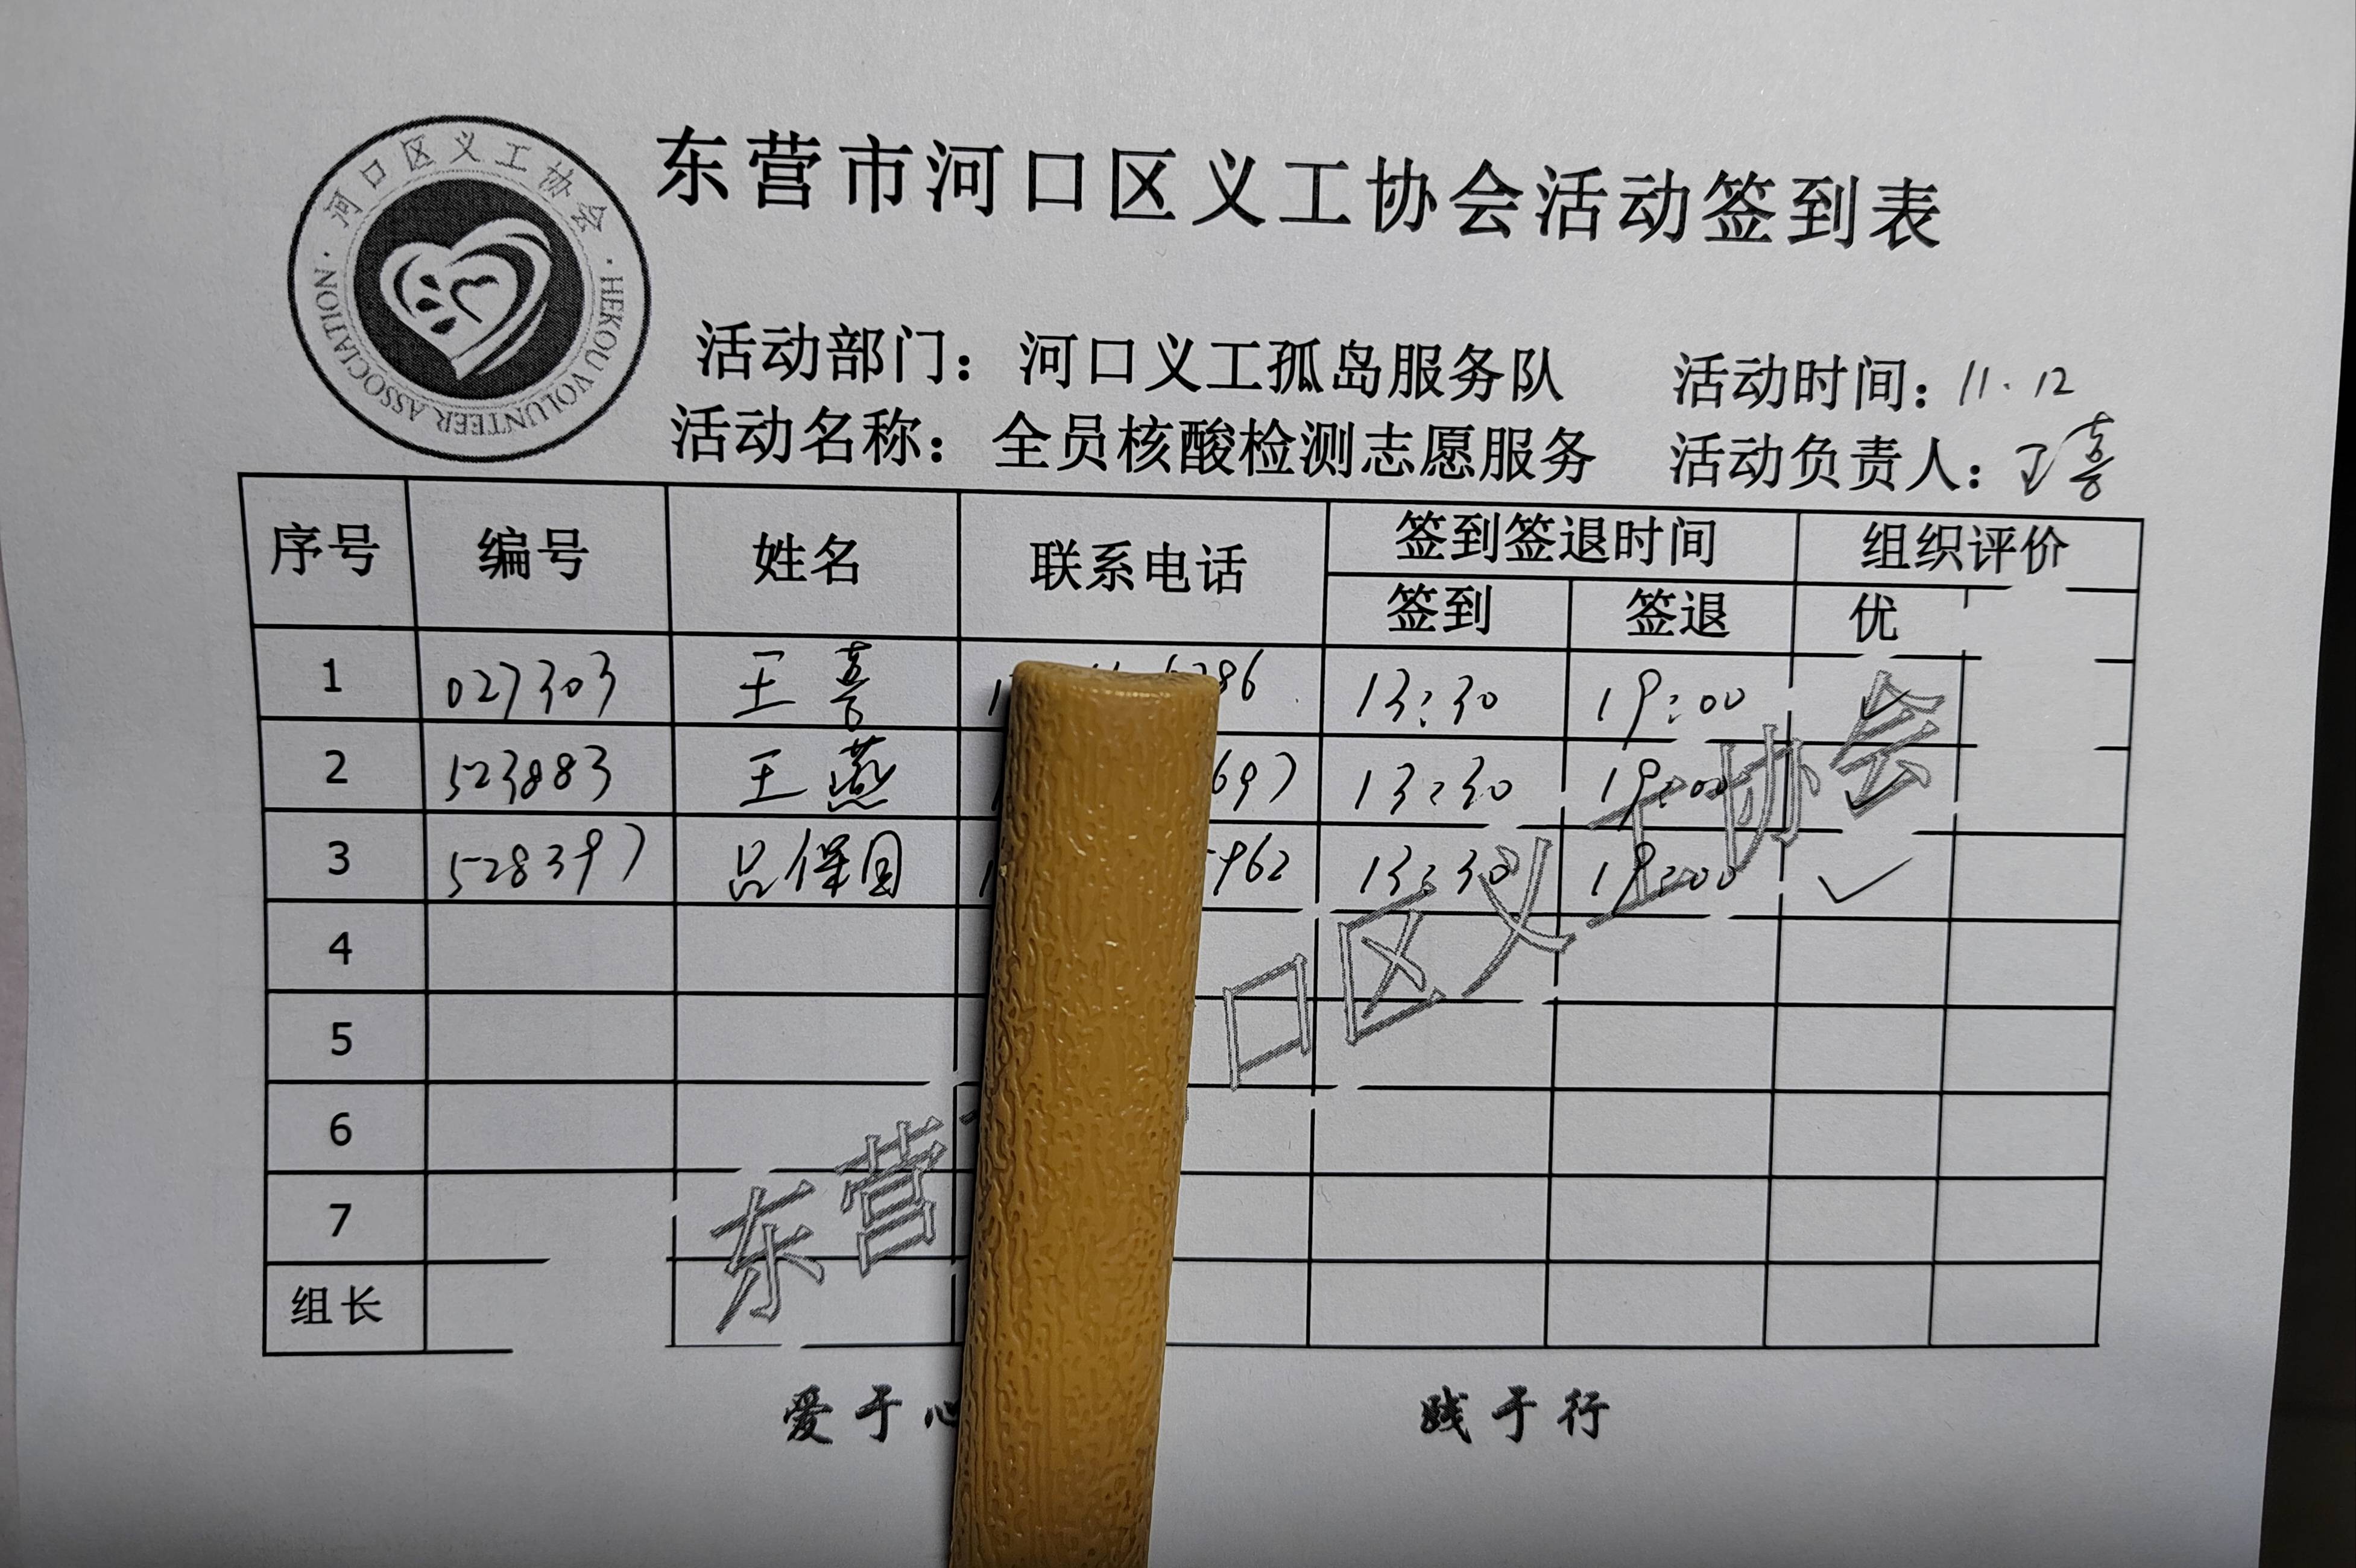 河口区义工协会
HEKOU VOLUNTEER ASSOCIATION
东营市河口区义工协会活动签到表
活动部门：河口义工孤岛服务队 活动时间：11.12
活动名称：全员核酸检测志愿服务 活动负责人：王喜
序号 编号 姓名 联系电话 签到签退时间 组织评价
签到 签退 优
1 027303 王喜 86 13:30 19:00 ✓
2 523883 王燕 697 13:30 19:00 ✓
3 528397 吕保国 962 13:30 19:00 ✓
4
5
6
7
组长
东营 口区义工协会
爱于心 践于行